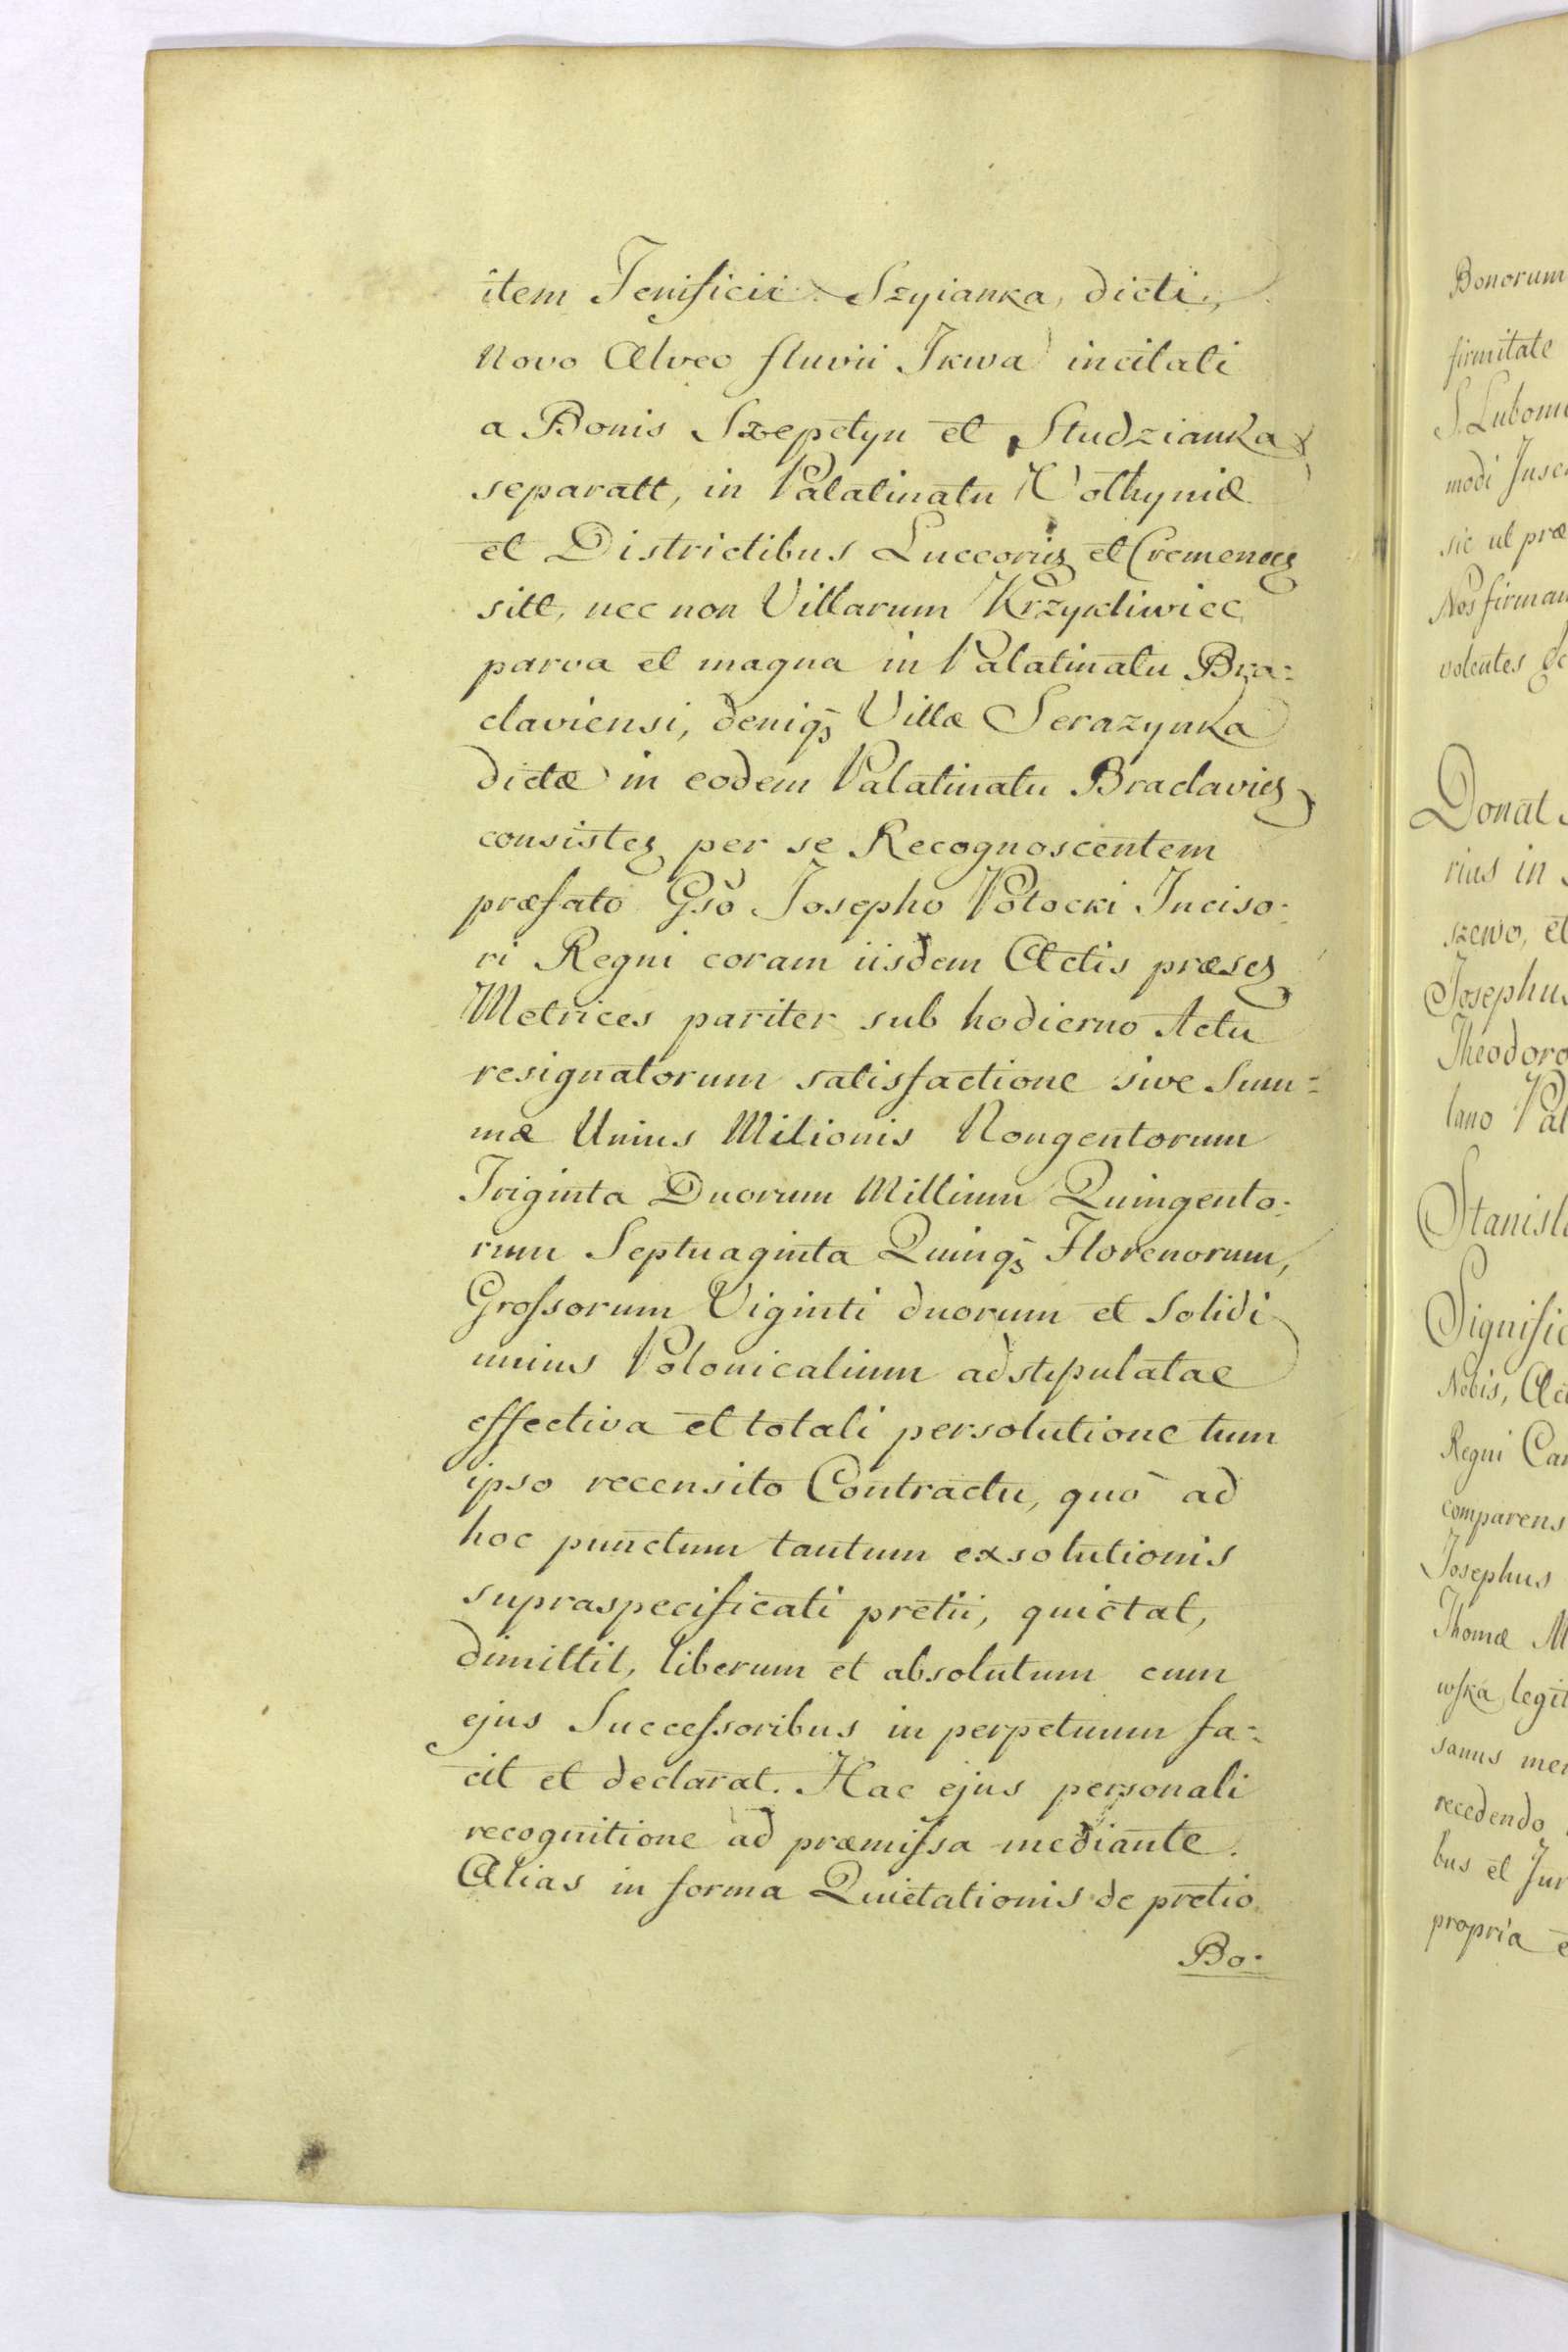 item Fenificii Szyianka, dicti,
Novo Alveo fluvii Ikwa incitati
a Bonis Szepetyn et Studzianka
separatt, in Palatinatu Volhyniæ
et Districtibus Luceorieș et Cremeneș
sitt, nec non Villarum Krzykliwiec
parva et magna in Palatinatu Bra:
claviensi, deniqȝ Villæ Serazynka
dictæ in eodem Palatinatu Braclavieș
consisteș per se Recognoscentem
præfato Gsô Josepho Potocki Inciso:
ri Regni coram iisdem Actis præseș
Metrices pariter sub hodierno Actu
resignatorum satisfactione sive Sum=
mæ Unius Milionis Nongentorum
Triginta Duorum Millium Quingento:
rum Septuaginta Quinqȝ Florenorum,
Grossorum Viginti duorum et Solidi
unius Polonicalium adstipulatae
effectiva et totali persolutione tum
ipso recensito Contractu, quò ad
hoc punctum tantum exsolutionis
supraspecificati pretii, quietat,
dimittit, liberum et absolutum cum
ejus Successoribus in perpetuum fa:
cit et declarat. Hac ejus personali
recognitione ad præmissa mediante.
Alias in forma Quietationis de pretio
Bo.
Bonorum
firmitate
S. Lubom
modi Jusc
sic ut præ
Nos firmam
volentes
Donat
rius in
szewo, et
Josephus
Theodoro
lano Pal
Stanisl
Signific
Nobis, Ac
Regni Can
comparens
Josephus
Thomæ M
wska legit
sanus men
recedendo
bus et Jur
propria e